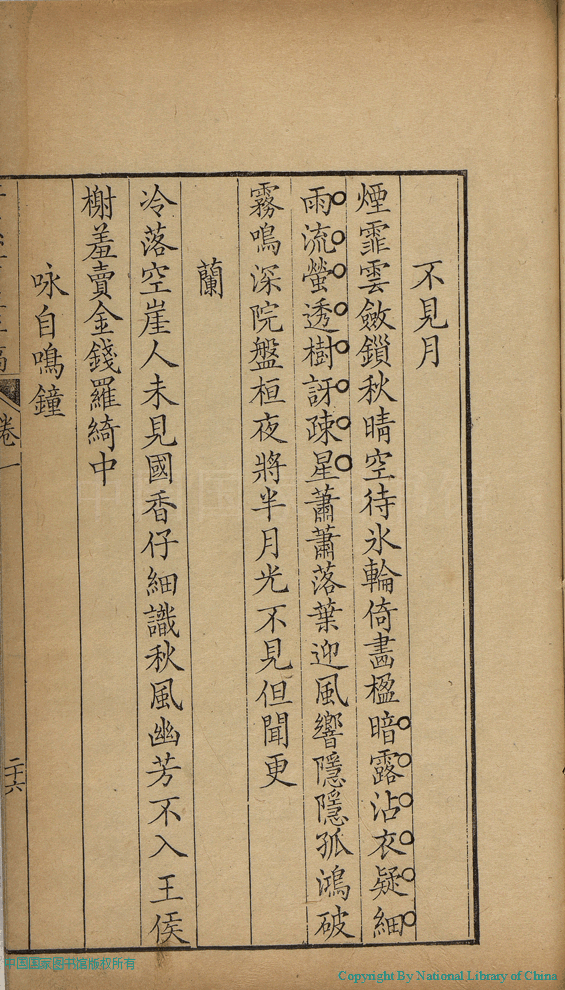 不見月
煙霏雲斂鎖秋晴空待氷輪倚畵楹暗露沾衣疑細
雨流螢透樹訝疎星蕭蕭落葉迎風響隱隱孤鴻破
霧鳴深院盤桓夜將半月光不見但聞更
蘭
冷落空崖人未見國香仔細識秋風幽芳不入王侯
榭羞賣金錢羅綺中
咏自鳴鐘
卷一
二十六
中国国家图书馆版权所有
Copyright By National Library of China